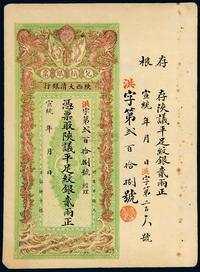 兌換銀票
陝西大清銀行
洪字第貳百拾捌號 經理
憑票取陝議平足紋銀貳兩正
宣統 年 月 日
洪字第貳百拾捌號
存根
存陝議平足紋銀貳兩正
宣統 年 月 日 洪字第二百 八號